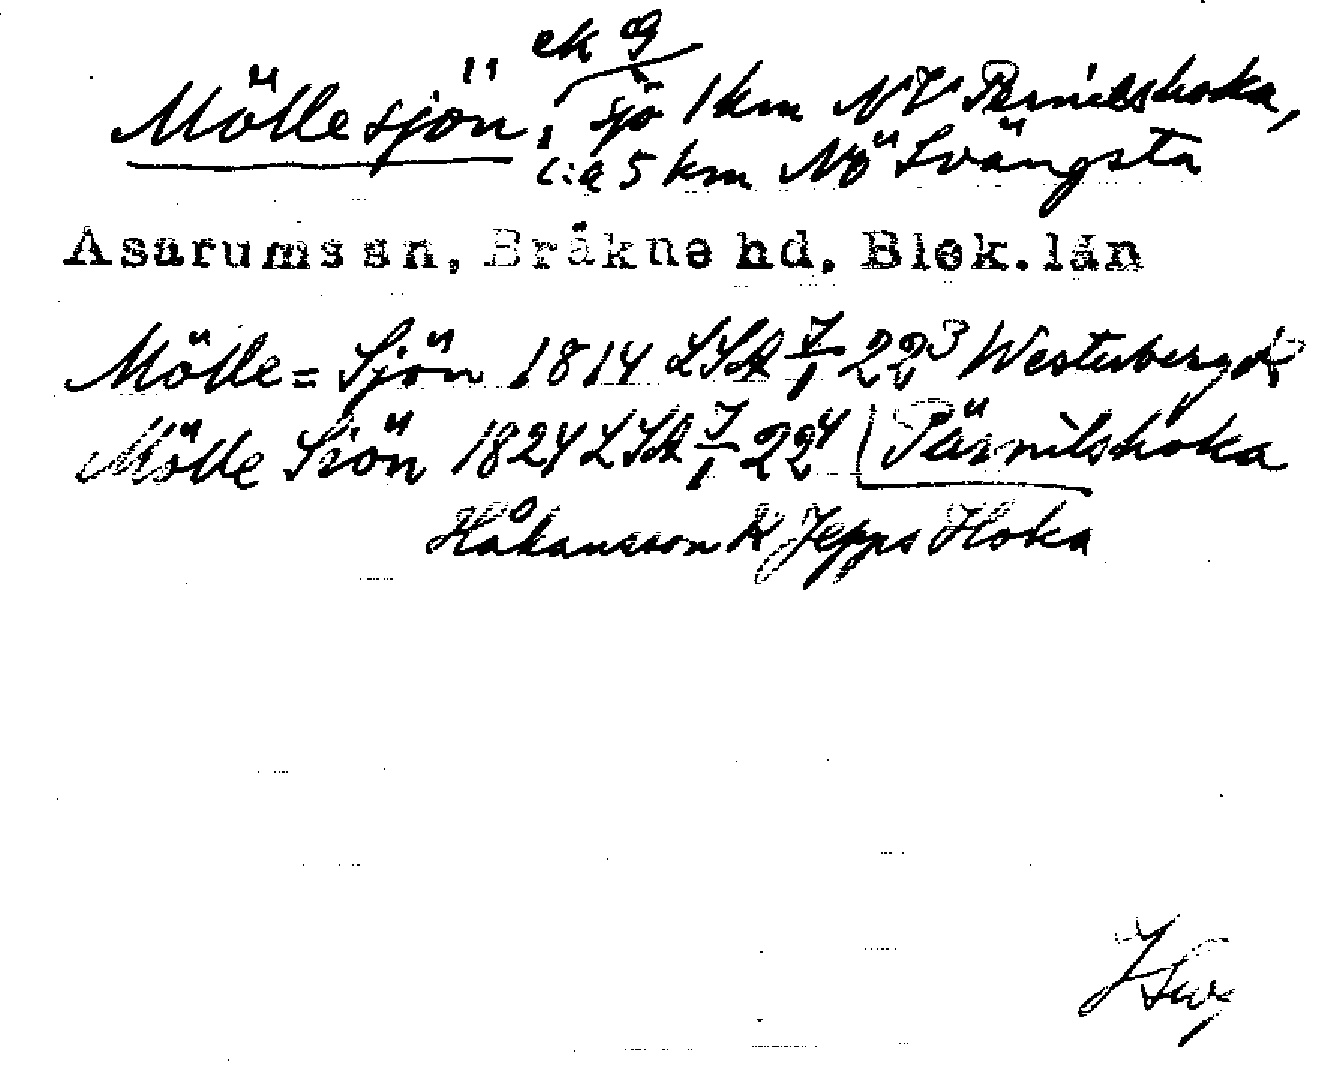 ek 9
Möllesjön, sjö 1 km NV Pärnilshoka,
c:a 5 km NÖ Svängsta
Asarums sn, Bräkne hd, Blek. län
Mölle=Sjön 1814 LSA 22³ Westerberg k
Mölle Siön 1824 LSA 22⁴ Pärnilshoka
Håkansson K Jepps Hoka